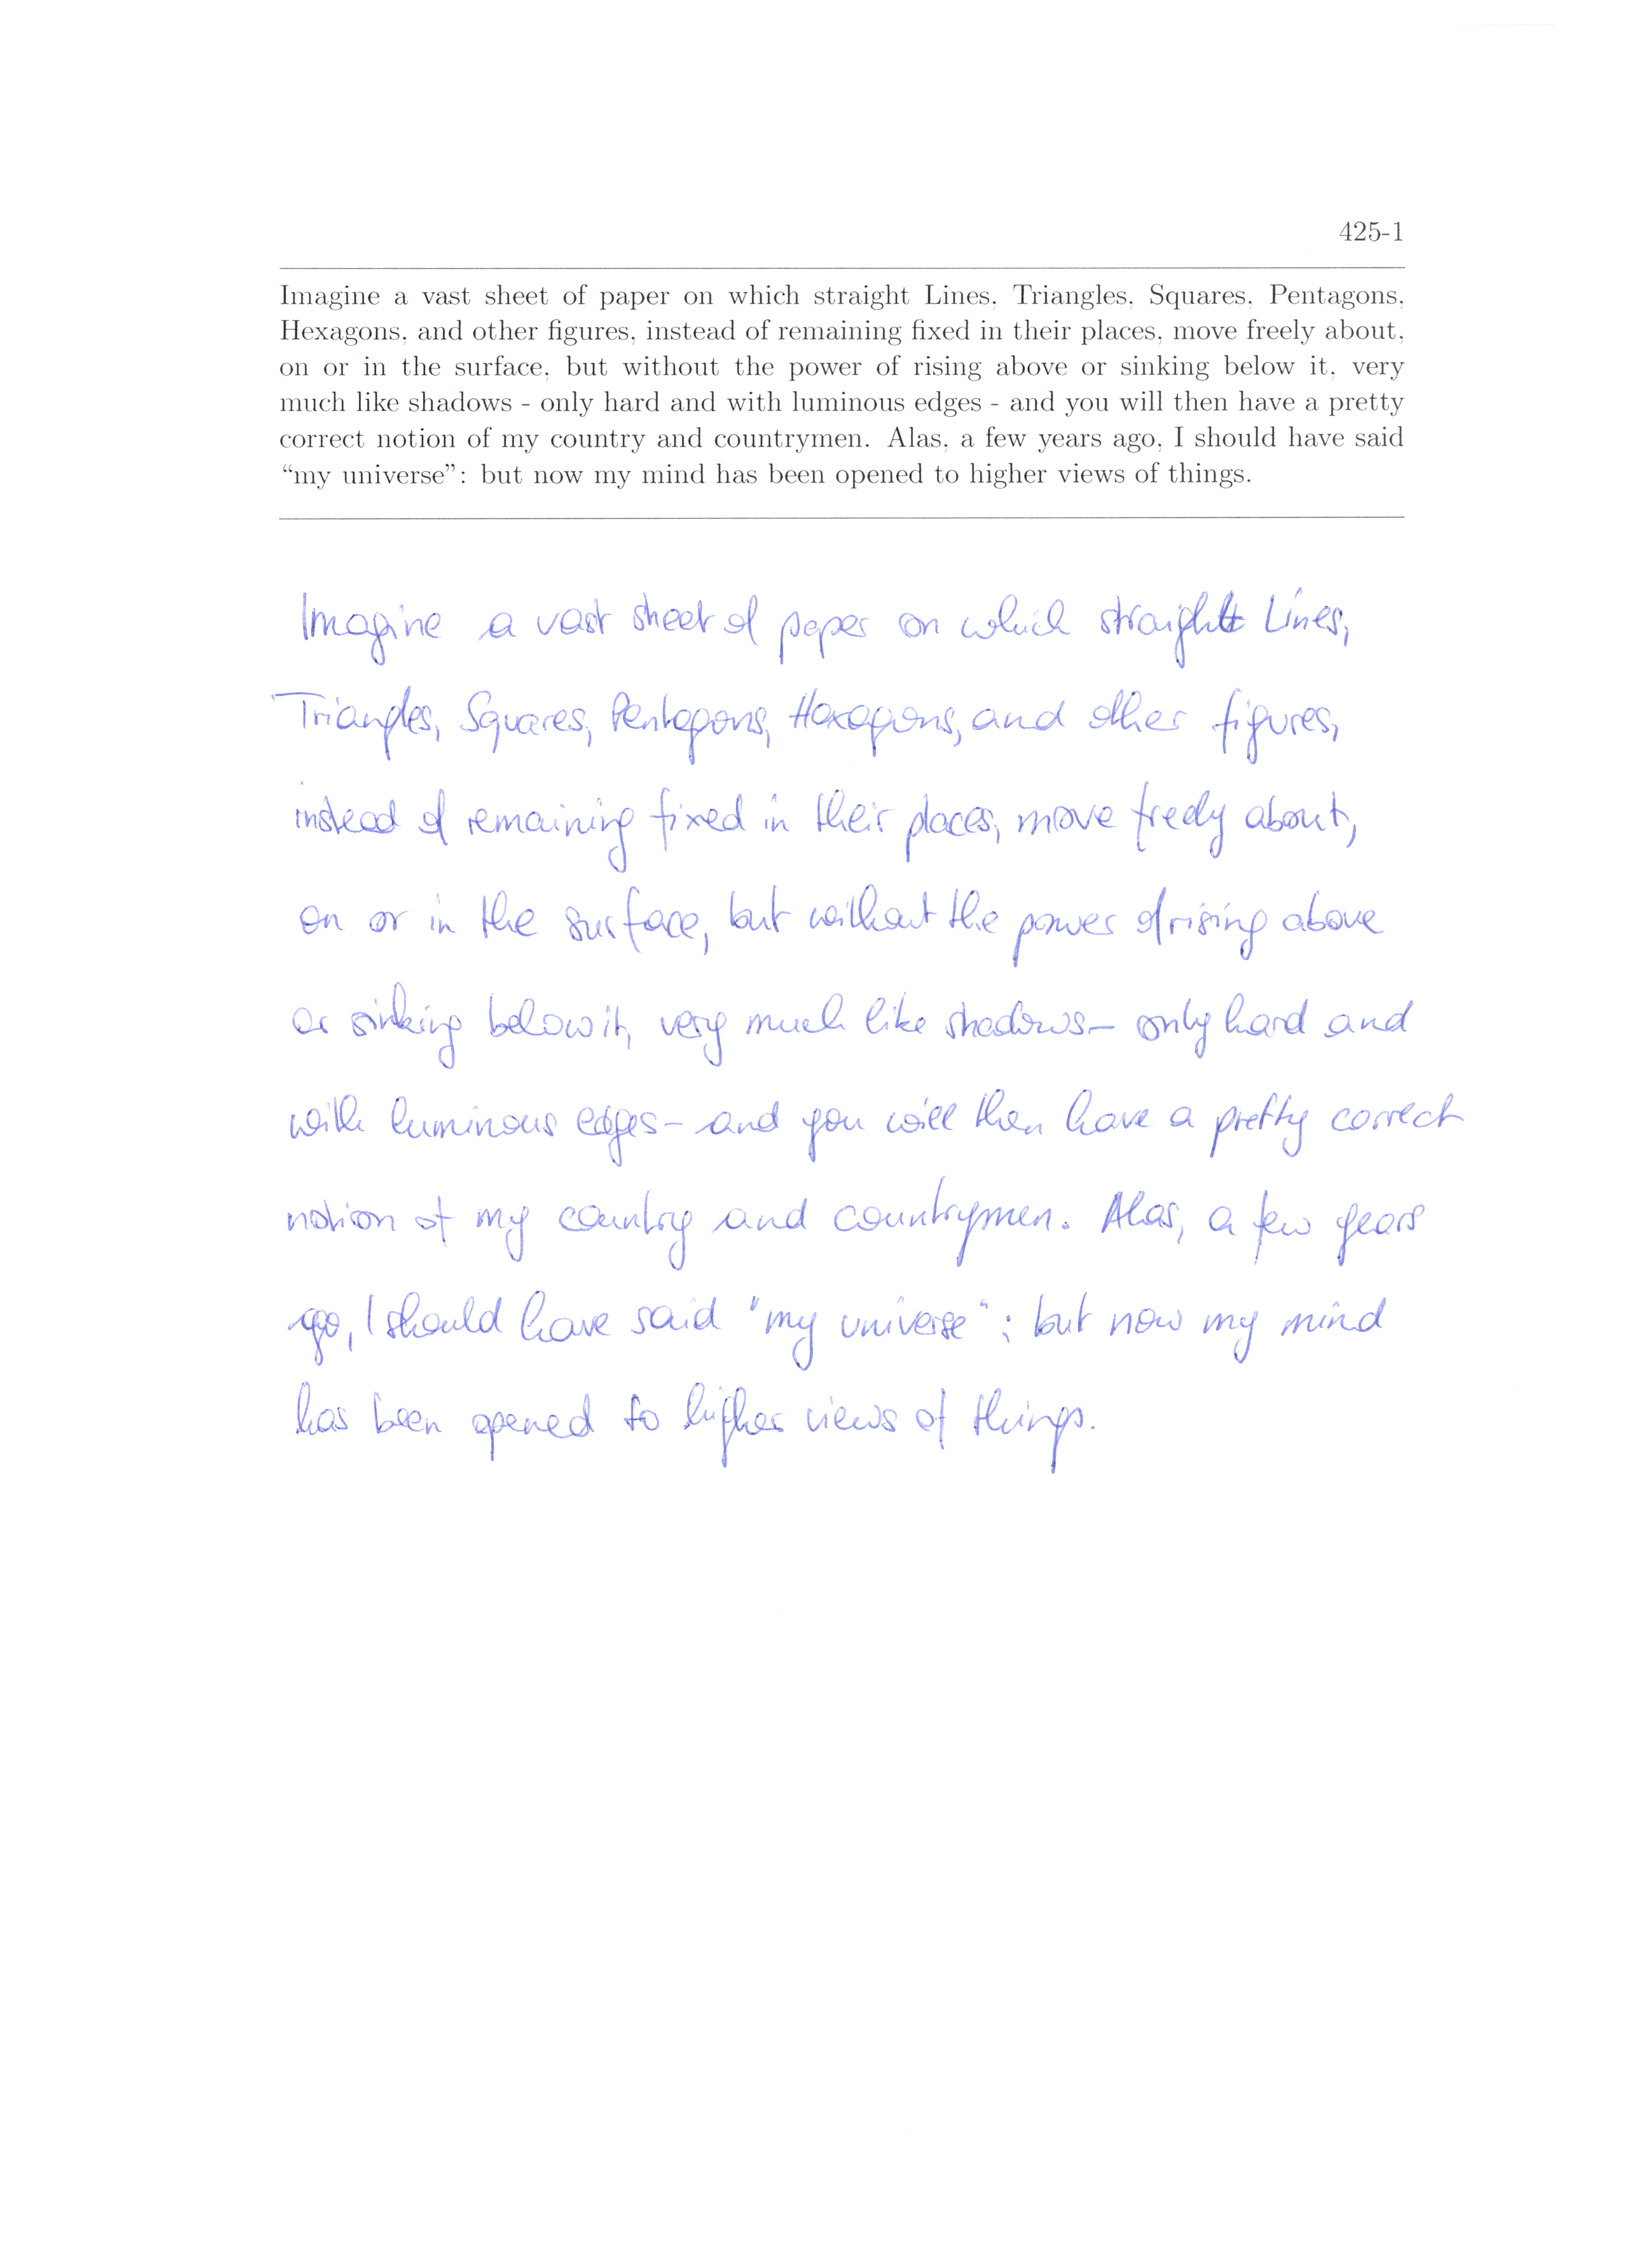 425-1
Imagine a vast sheet of paper on which straight Lines, Triangles, Squares, Pentagons,
Hexagons, and other figures, instead of remaining fixed in their places, move freely about,
on or in the surface, but without the power of rising above or sinking below it, very
much like shadows - only hard and with luminous edges - and you will then have a pretty
correct notion of my country and countrymen. Alas, a few years ago, I should have said
“my universe”: but now my mind has been opened to higher views of things.
Imagine a vast sheet of paper on which straight Lines,
Triangles, Squares, Pentagons, Hexagons, and other figures,
instead of remaining fixed in their places, move freely about,
on or in the surface, but without the power of rising above
or sinking below it, very much like shadows – only hard and
with luminous edges – and you will then have a pretty correct
notion of my country and countrymen. Alas, a few years
ago, I should have said "my universe"; but now my mind
has been opened to higher views of things.